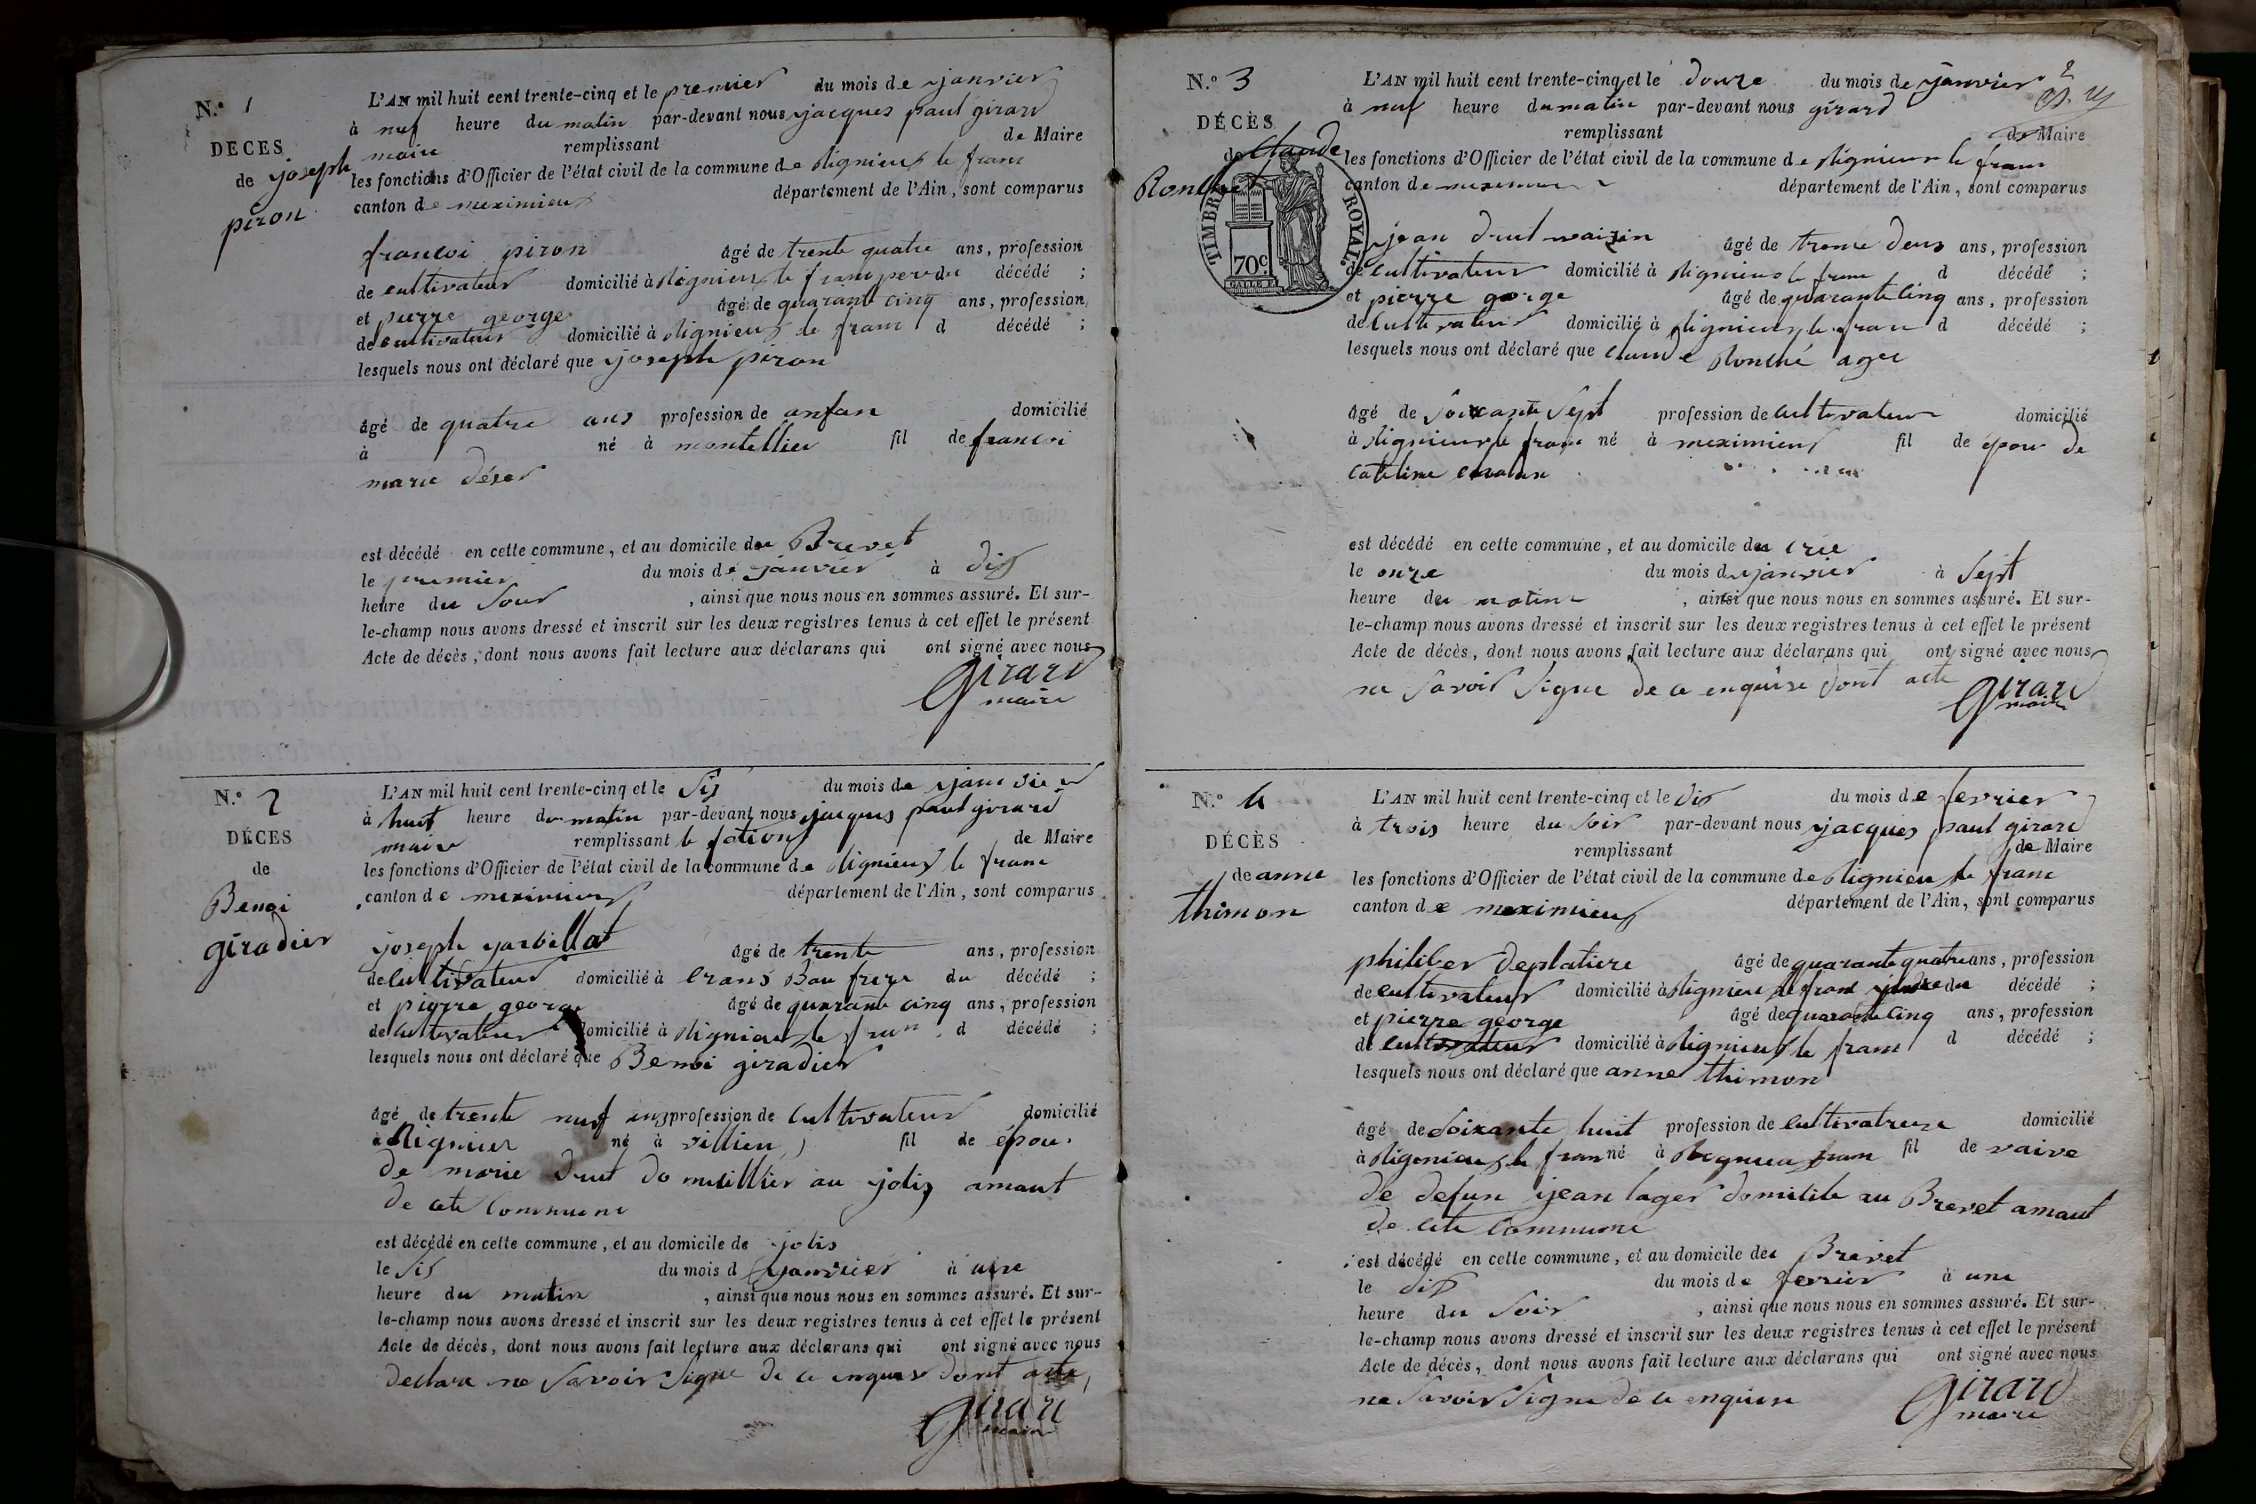 N.° 1
DECES
de joseph
piron
L'AN mil huit cent trente-cinq et le premier du mois de janvier
à neuf heure du matin par-devant nous jacques paul girard
maire remplissant de Maire
les fonctions d'Officier de l'état civil de la commune de Rignieux le franc
canton de meximieux département de l'Ain, sont comparus
francoi piron âgé de trente quatre ans, profession
de cultivateur domicilié à Rignieux le franc perre du décédé ;
et pierre george âgé de quarante cinq ans, profession
de cultivateur domicilié à Rignieux le franc d décédé ;
lesquels nous ont déclaré que joseph piron
âgé de quatre ans profession de anfan domicilié
à né à montellier fil de francoi
marie
est décédé en cette commune, et au domicile du Brevet
le premier du mois de janvier à dix
heure du Soir , ainsi que nous nous en sommes assuré. Et sur-
le-champ nous avons dressé et inscrit sur les deux registres tenus à cet effet le présent
Acte de décès, dont nous avons fait lecture aux déclarans qui ont signé avec nous
Girard
maire
N.° 2
DÉCES
de
Benoi
giradier
L'AN mil huit cent trente-cinq et le Six du mois de janvier
à huit heure du matin par-devant nous jacques paul girard
maire remplissant le de Maire
les fonctions d'Officier de l'état civil de la commune de Rignieux le franc
canton de meximieux département de l'Ain, sont comparus
joseph âgé de trente ans, profession
de cultivateur domicilié à Crans Bau frere du décédé ;
et pierre george âgé de quarante cinq ans, profession
de cultivateur domicilié à Rignieux le franc d décédé ;
lesquels nous ont déclaré que Benoi giradier
âgé de trente neuf ans profession de cultivateur domicilié
à Rignieux né à villieu fil de épou
de marie Druet au jolis amaut
de cete Commune
est décédé en cette commune, et au domicile de jolis
le Six du mois d janvier à une
heure du matin , ainsi que nous nous en sommes assuré. Et sur-
le-champ nous avons dressé et inscrit sur les deux registres tenus à cet effet le présent
Acte de décès, dont nous avons fait lecture aux déclarans qui ont signé avec nous
declare ne Savoir Signe de ce enquis dont acte
Girard
maire
2
N.° 3
DÉCÈS
de Claude
TIMBRE ROYAL.
70c.
L'AN mil huit cent trente-cinq et le douze du mois de janvier
à neuf heure du matin par-devant nous girard
remplissant de Maire
les fonctions d'Officier de l'état civil de la commune de Rignieux le franc
canton de meximieux département de l'Ain, sont comparus
jean druet voizin âgé de trente deux ans, profession
de cultivateur domicilié à Rignieux le franc d décédé ;
et pierre gorge âgé de quarante cinq ans, profession
de cultivateur domicilié à Rignieux le franc d décédé ;
lesquels nous ont déclaré que claude agee
âgé de Soixante Sept profession de cultivateur domicilié
à Rignieux le franc né à meximieux fil de épou de
cateline
est décédé en cette commune, et au domicile du crie
le onze du mois de janvier à Sept
heure du matin , ainsi que nous nous en sommes assuré. Et sur-
le-champ nous avons dressé et inscrit sur les deux registres tenus à cet effet le présent
Acte de décès, dont nous avons fait lecture aux déclarans qui ont signé avec nous
ne Savoir Signe de ce enquise dont acte
Girard
maire
N.° 4
DÉCÈS
de anne
thimon
L'AN mil huit cent trente-cinq et le dix du mois de fevrier
à trois heure du Soir par-devant nous jacques paul girard
remplissant de Maire
les fonctions d'Officier de l'état civil de la commune de Rignieu le franc
canton de meximieux département de l'Ain, sont comparus
philiber deplatiere âgé de quarante quatre ans, profession
de cultivateur domicilié à Rignieu le franc du décédé ;
et pierre george âgé de quarante cinq ans, profession
de cultivateur domicilié à Rignieux le franc d décédé ;
lesquels nous ont déclaré que anne thimon
âgé de Soixante huit profession de cultivatrise domicilié
à Rignieux le fran né à Rignieu fran fil de vaive
de defun jean lager domicilie au Brevet amaut
de cete Commune
est décédé en cette commune, et au domicile de Brevet
le dix du mois de fevrier à une
heure du Soir , ainsi que nous nous en sommes assuré. Et sur-
le-champ nous avons dressé et inscrit sur les deux registres tenus à cet effet le présent
Acte de décès, dont nous avons fait lecture aux déclarans qui ont signé avec nous
ne Savoir Signe de ce enquise
Girard
maire